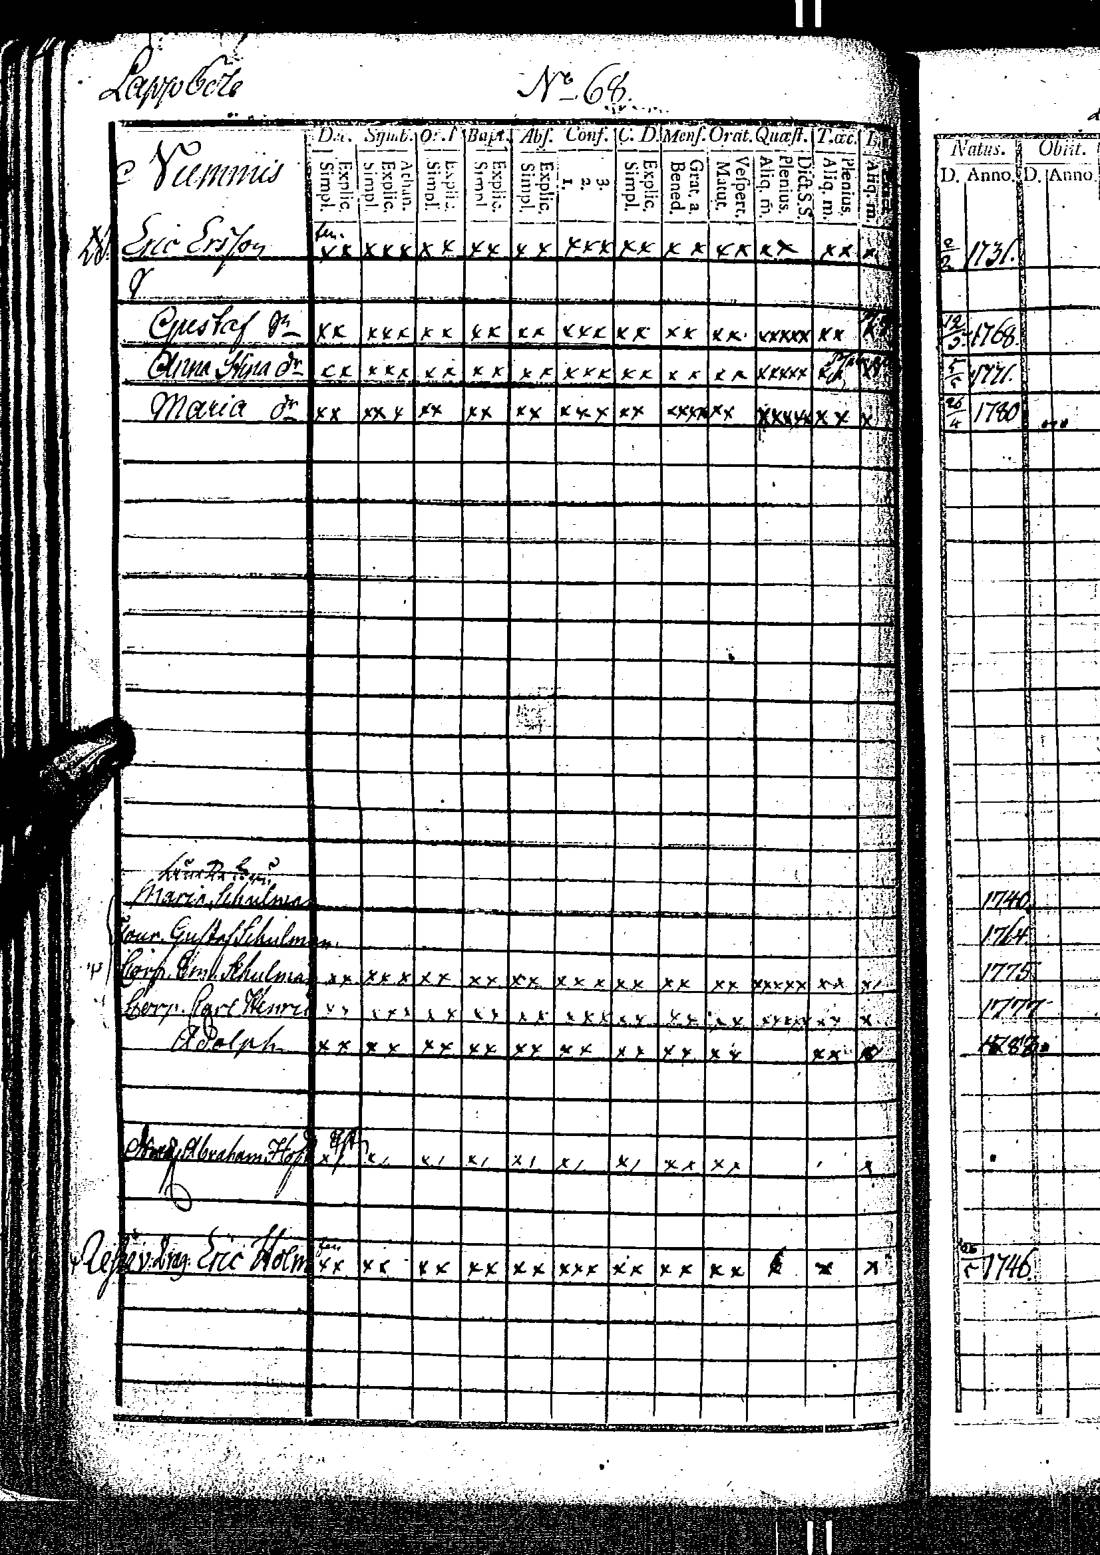 Lappböle No 68.
D.n. Symb. Or. Bapt. Abs. Conf. C. D. Mens. Orat. Quæst. T.æc.
Natus. Obiit.
Nummis
Explic. Simpl. Athan. Explic. Simpl. Explic. Simpl. Explic. Simpl. Explic. Simpl. 3. 2. 1. Explic. Simpl. Grat. a. Bened. Vesperc. Matut. Dict. S. S. Plenius. Aliq. m. Plenius. Aliq. m. Aliq. m.
D. Anno. D. Anno.
Eric Ersson xx xxx xx xx xx xxx xx xx xx xx xx x 2/2 1731.
Gustaf dn xx xxx xx xx xx xxx xx xx xx xxxxx xx 1768
Anna Stina dr xx xxx xx xx xx xxx xx xx xx xxxxx 5/5 1771.
Maria dr xx xxx xx xx xx xxx xx xxxx xx xxxxx xx x 26/4 1780
Maria Schulman 1740.
Four. Gustaf Schulman 1764
Corp. Em. Schulman xx xxx xx xx xx xxx xx xx xx xxxxx xx x 1775
Corp. Carl Henric xx xxx xx xx xx xxx xx xx xx xxxx xx x 1777
Adolph xx xx xx xx xx xx xx xx xx xx
Abraham
Drag. Eric Holm xx xx xx xx xx xxx xx xx xx x x x 1746.